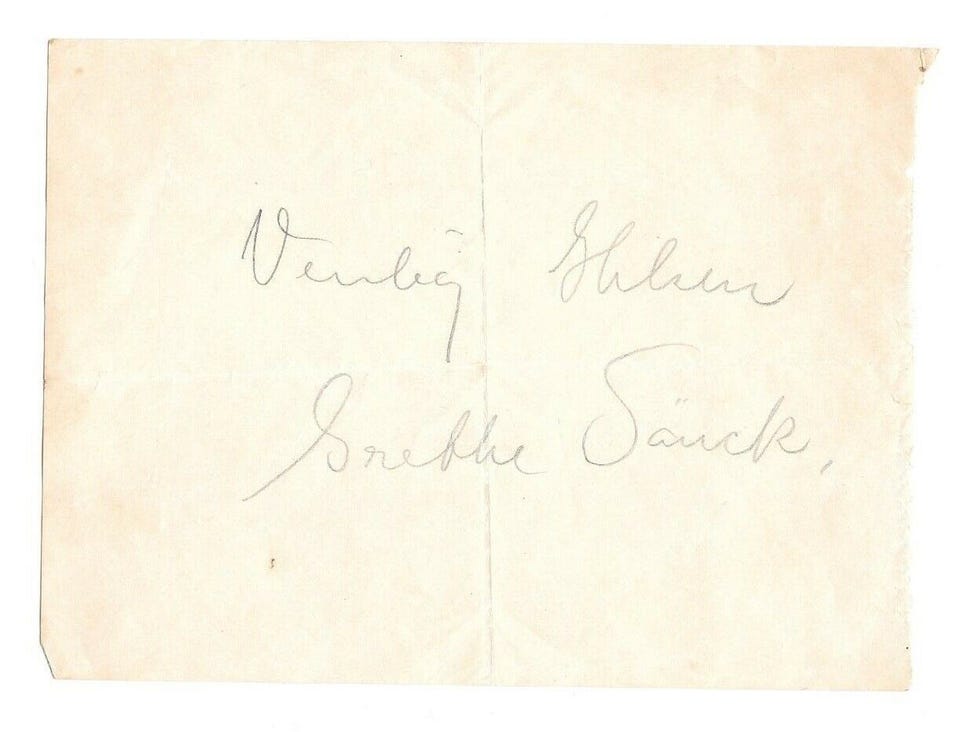 Venlig Hilsen
Grethe Sönck,